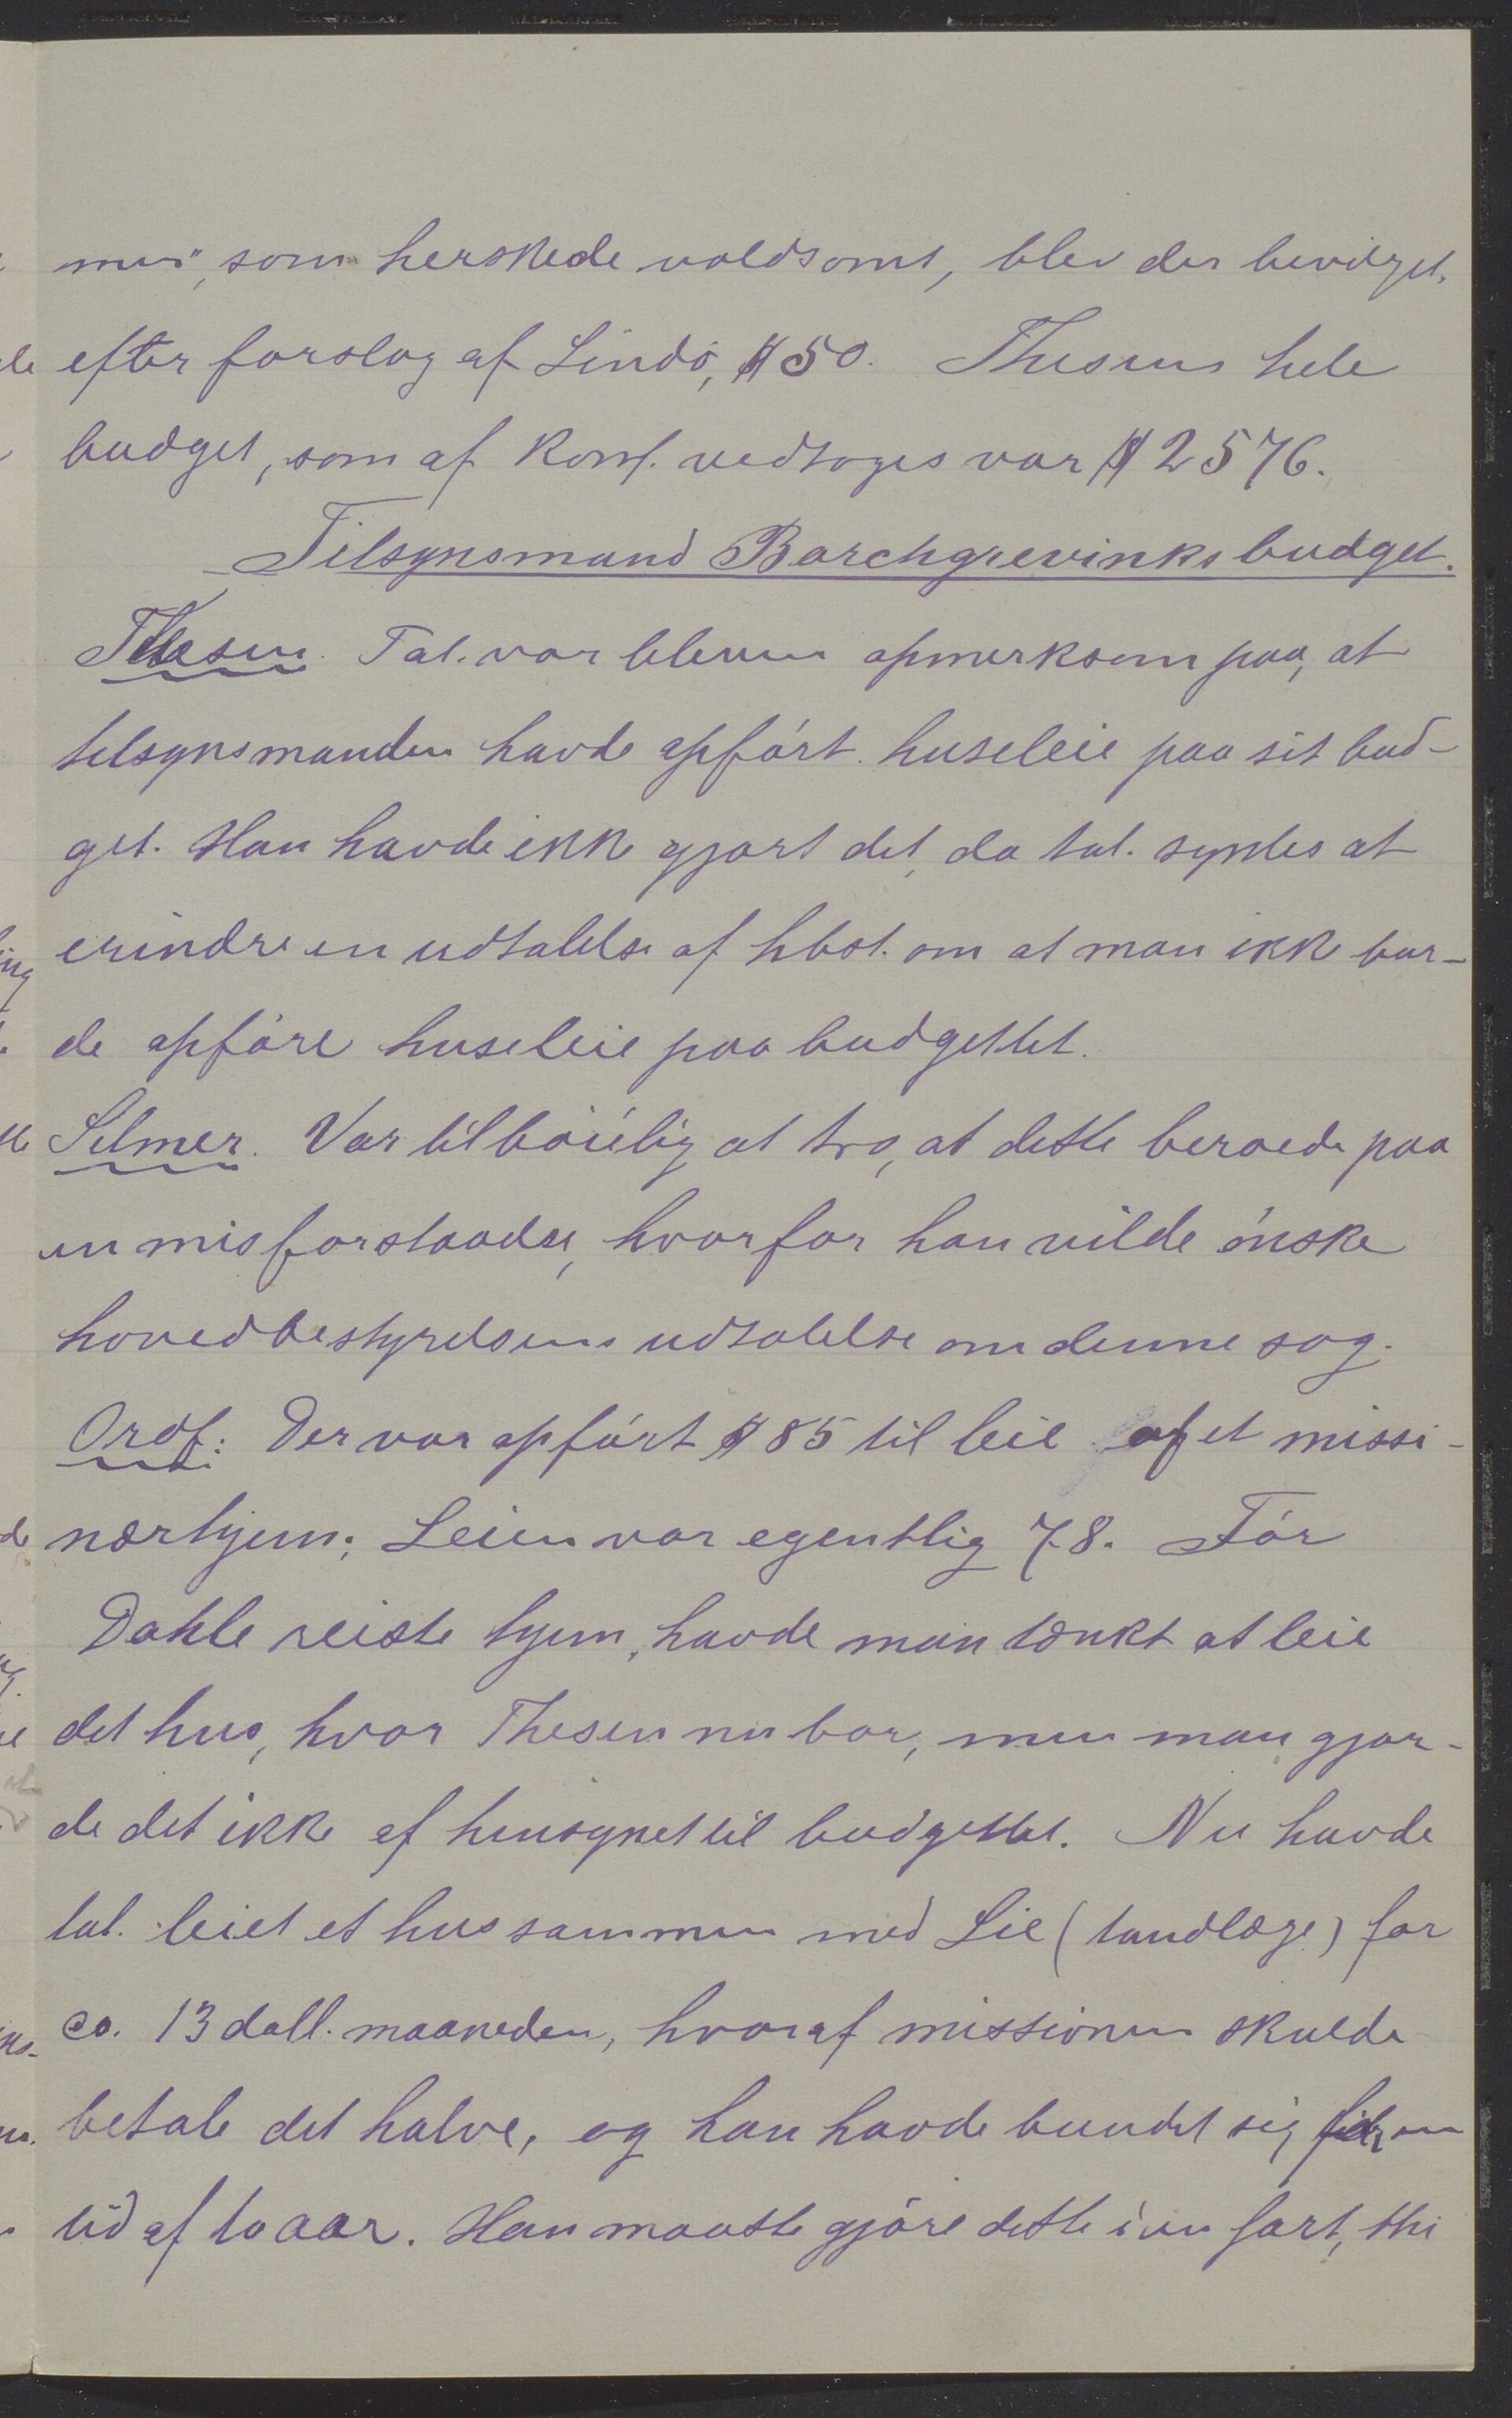 mus", som herskede voldsomt, blev der bevilget,
efter forslag af Lindö, $50. Thesens hele
budget, som af Konf. vedtoges var $2576.
Tilsynsmand Borchgrevinks budget.
Thesen. Tal. var bleven opmerksom paa, at
tilsynsmanden havde opført huseleie paa sit bud-
get. Han havde ikke gjort det, da tal. syntes at
erindre en udtalelse af hbst. om at man ikke bur-
de opføre huseleie paa budgettet.
Selmer. Var tilbøielig at tro, at dette beroede paa
en misforstaaelse, hvorfor han vilde ønske
hovedbestyrelsens udtalelse om denne sag.
Ordf: Der var opført $85 til leie af et missi-
nærhjem; Leien var egentlig 78. Før
Dahle reiste hjem, havde man tænkt at leie
det hus, hvor Thesen nu bor, men man gjor-
de det ikke af hensynet til budgettet. Nu havde
tal. leiet et hus sammen med Lie (tandlæge) for
ca. 13 doll. maaneden, hvoraf missionen skulde
betale det halve, og han havde bundet sig for en
tid af to aar. Han maatte gjøre dette i en fart, thi